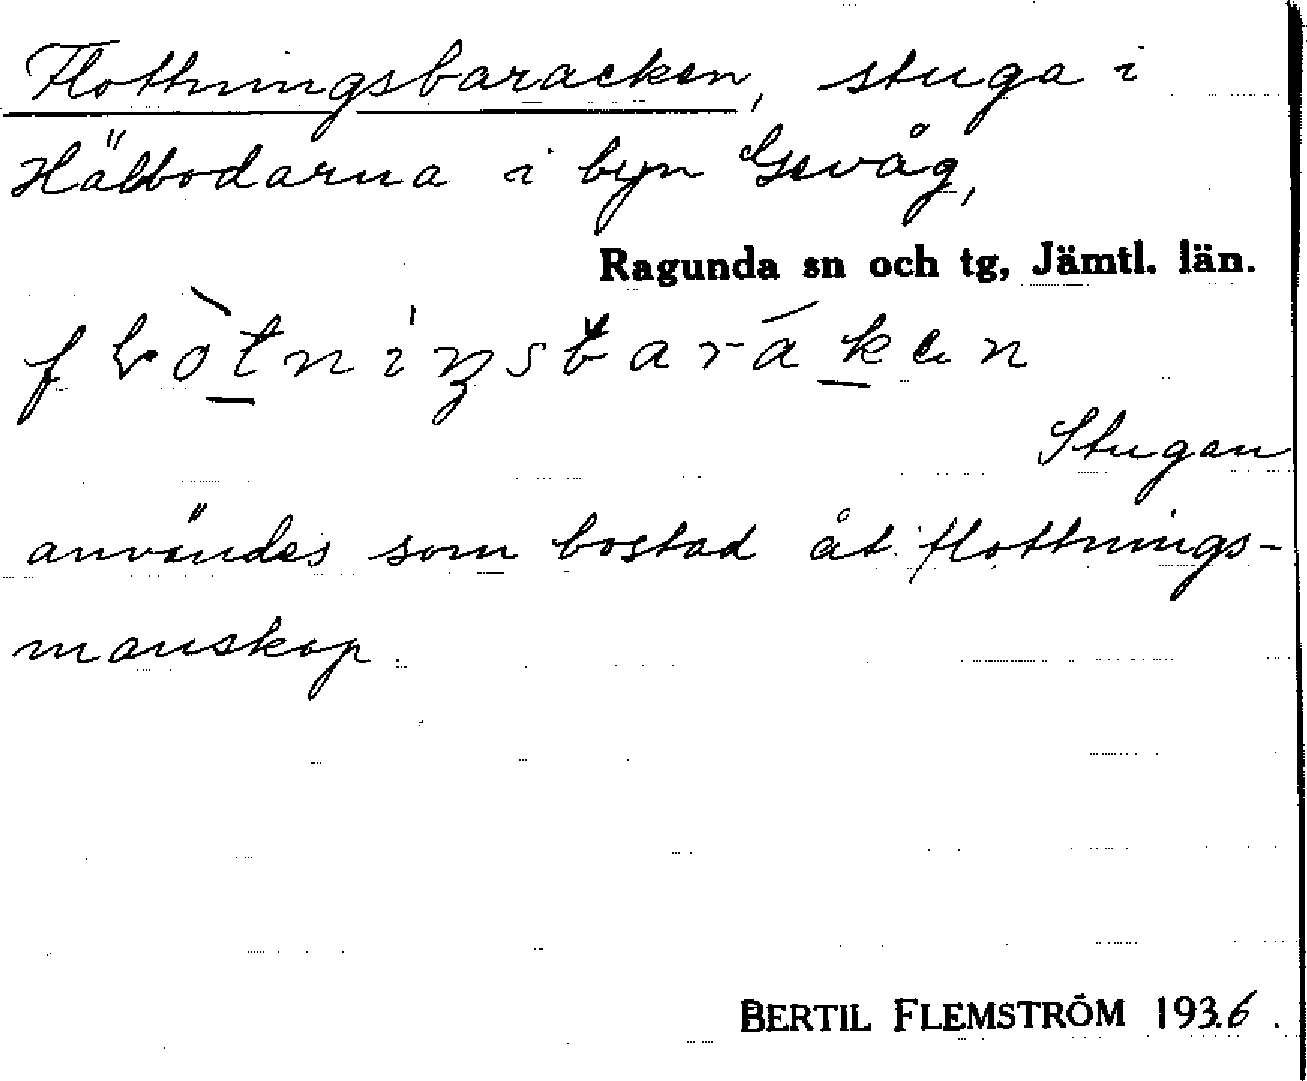 Flottningsbaracken, stuga i
Hälbodarna i byn Gevåg,
Ragunda sn och tg, Jämtl. län.
Stugan
användes som bostad åt flottnings-
manskap.
BERTIL FLEMSTRÖM 1936.